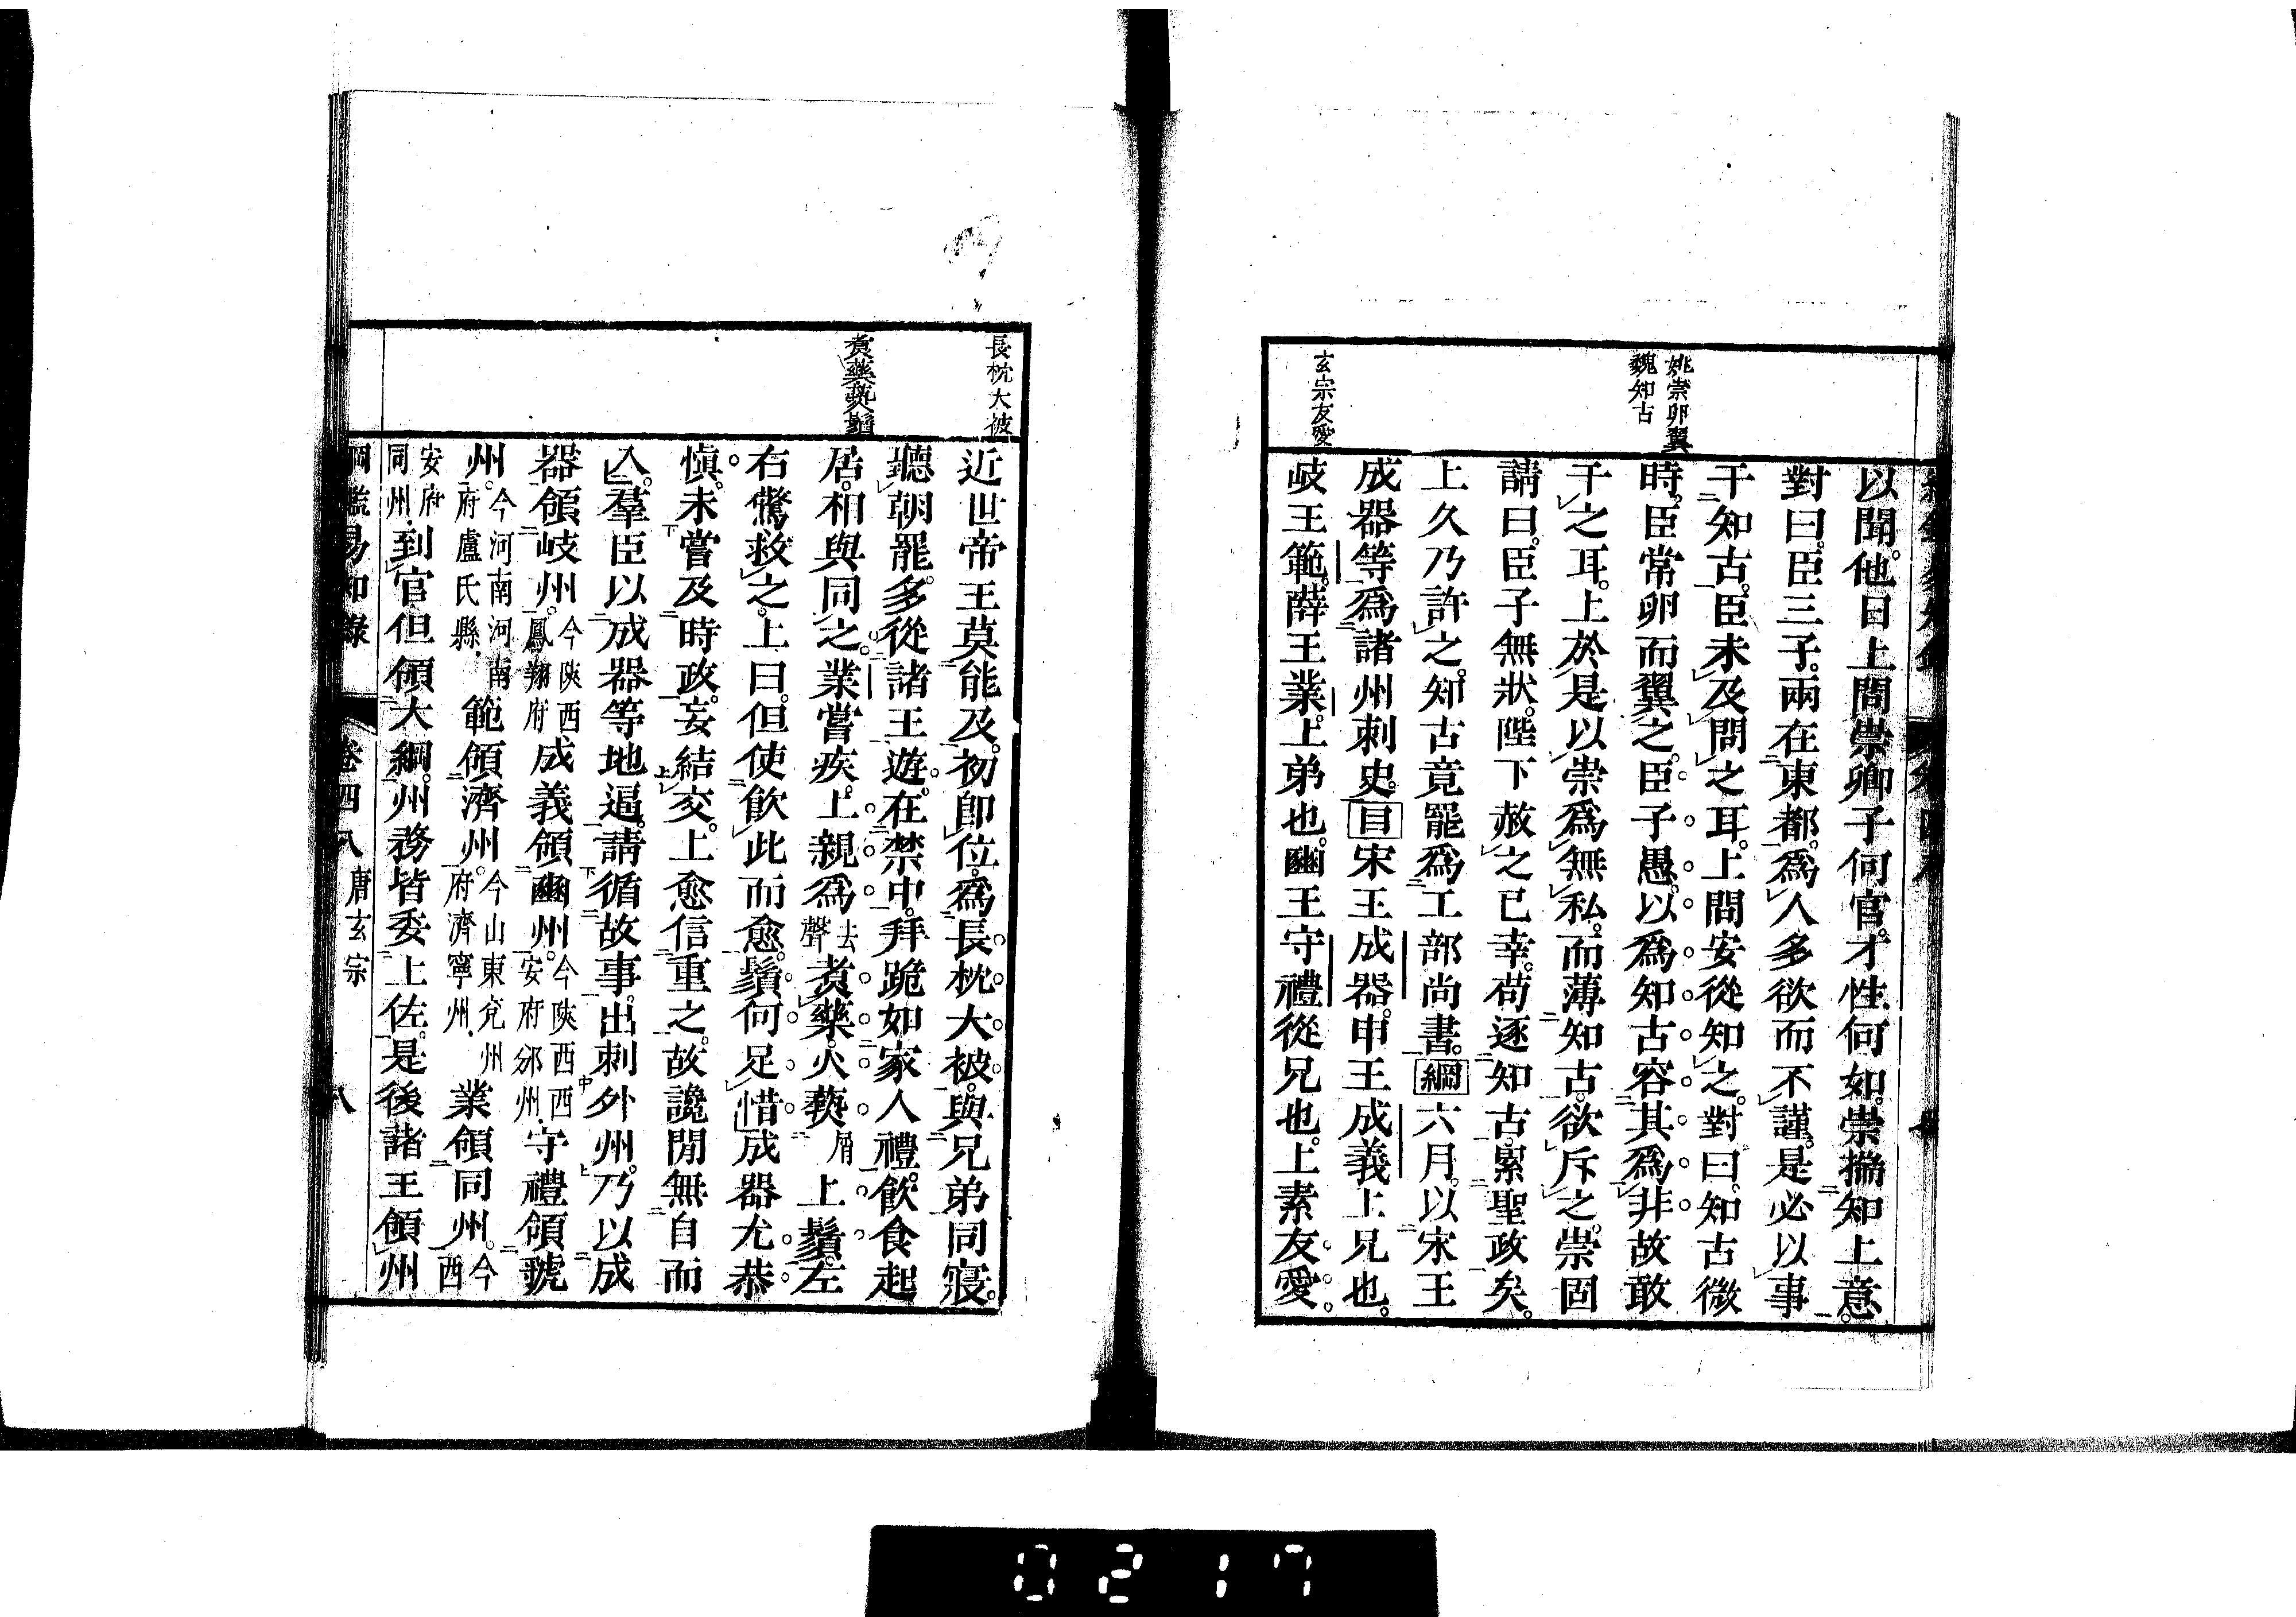 姚崇卵翼
魏知古
玄宗友愛
以聞。他日上問崇卿子何官。才性何如。崇揣知上意。
對曰。臣三子。兩在東都。爲人多欲而不謹。是必以事
干知古。臣未及問之耳。上問安從知之。對曰。知古微
時。臣常卵而翼之。臣子愚。以爲知古容其爲非。故敢
干之耳。上於是以崇爲無私。而薄知古。欲斥之。崇固
請曰。臣子無狀。陛下赦之已幸。苟逐知古。累聖政矣。
上久乃許之。知古竟罷爲工部尚書。綱六月。以宋王
成器等爲諸州刺史。目宋王成器。申王成義上兄也。
岐王範。薛王業。上弟也。豳王守禮從兄也。上素友愛。
長枕大被
煑藥爇鬚
近世帝王莫能及。初卽位。爲長枕大被。與兄弟同寢。
聽朝罷。多從諸王遊。在禁中。拜跪如家人禮。飲食起
居。相與同之。業嘗疾。上親爲去聲煑藥。火爇屑上鬚。左
右驚救之。上曰。但使飲此而愈。鬚何足惜。成器尤恭
愼。未嘗及時政。妄結交。上愈信重之。故讒閒無自而
入。羣臣以成器等地逼。請循故事。出刺外州。乃以成
器領岐州。今陝西鳳翔府成義領豳州。今陝西西安府邠州守禮領虢
州。今河南河南府盧氏縣範領濟州。今山東兗州府濟寧州業領同州。今西
安府同州到官但領大綱。州務皆委上佐。是後諸王領州
綱鑑易知錄 卷四八 唐玄宗 八
0217